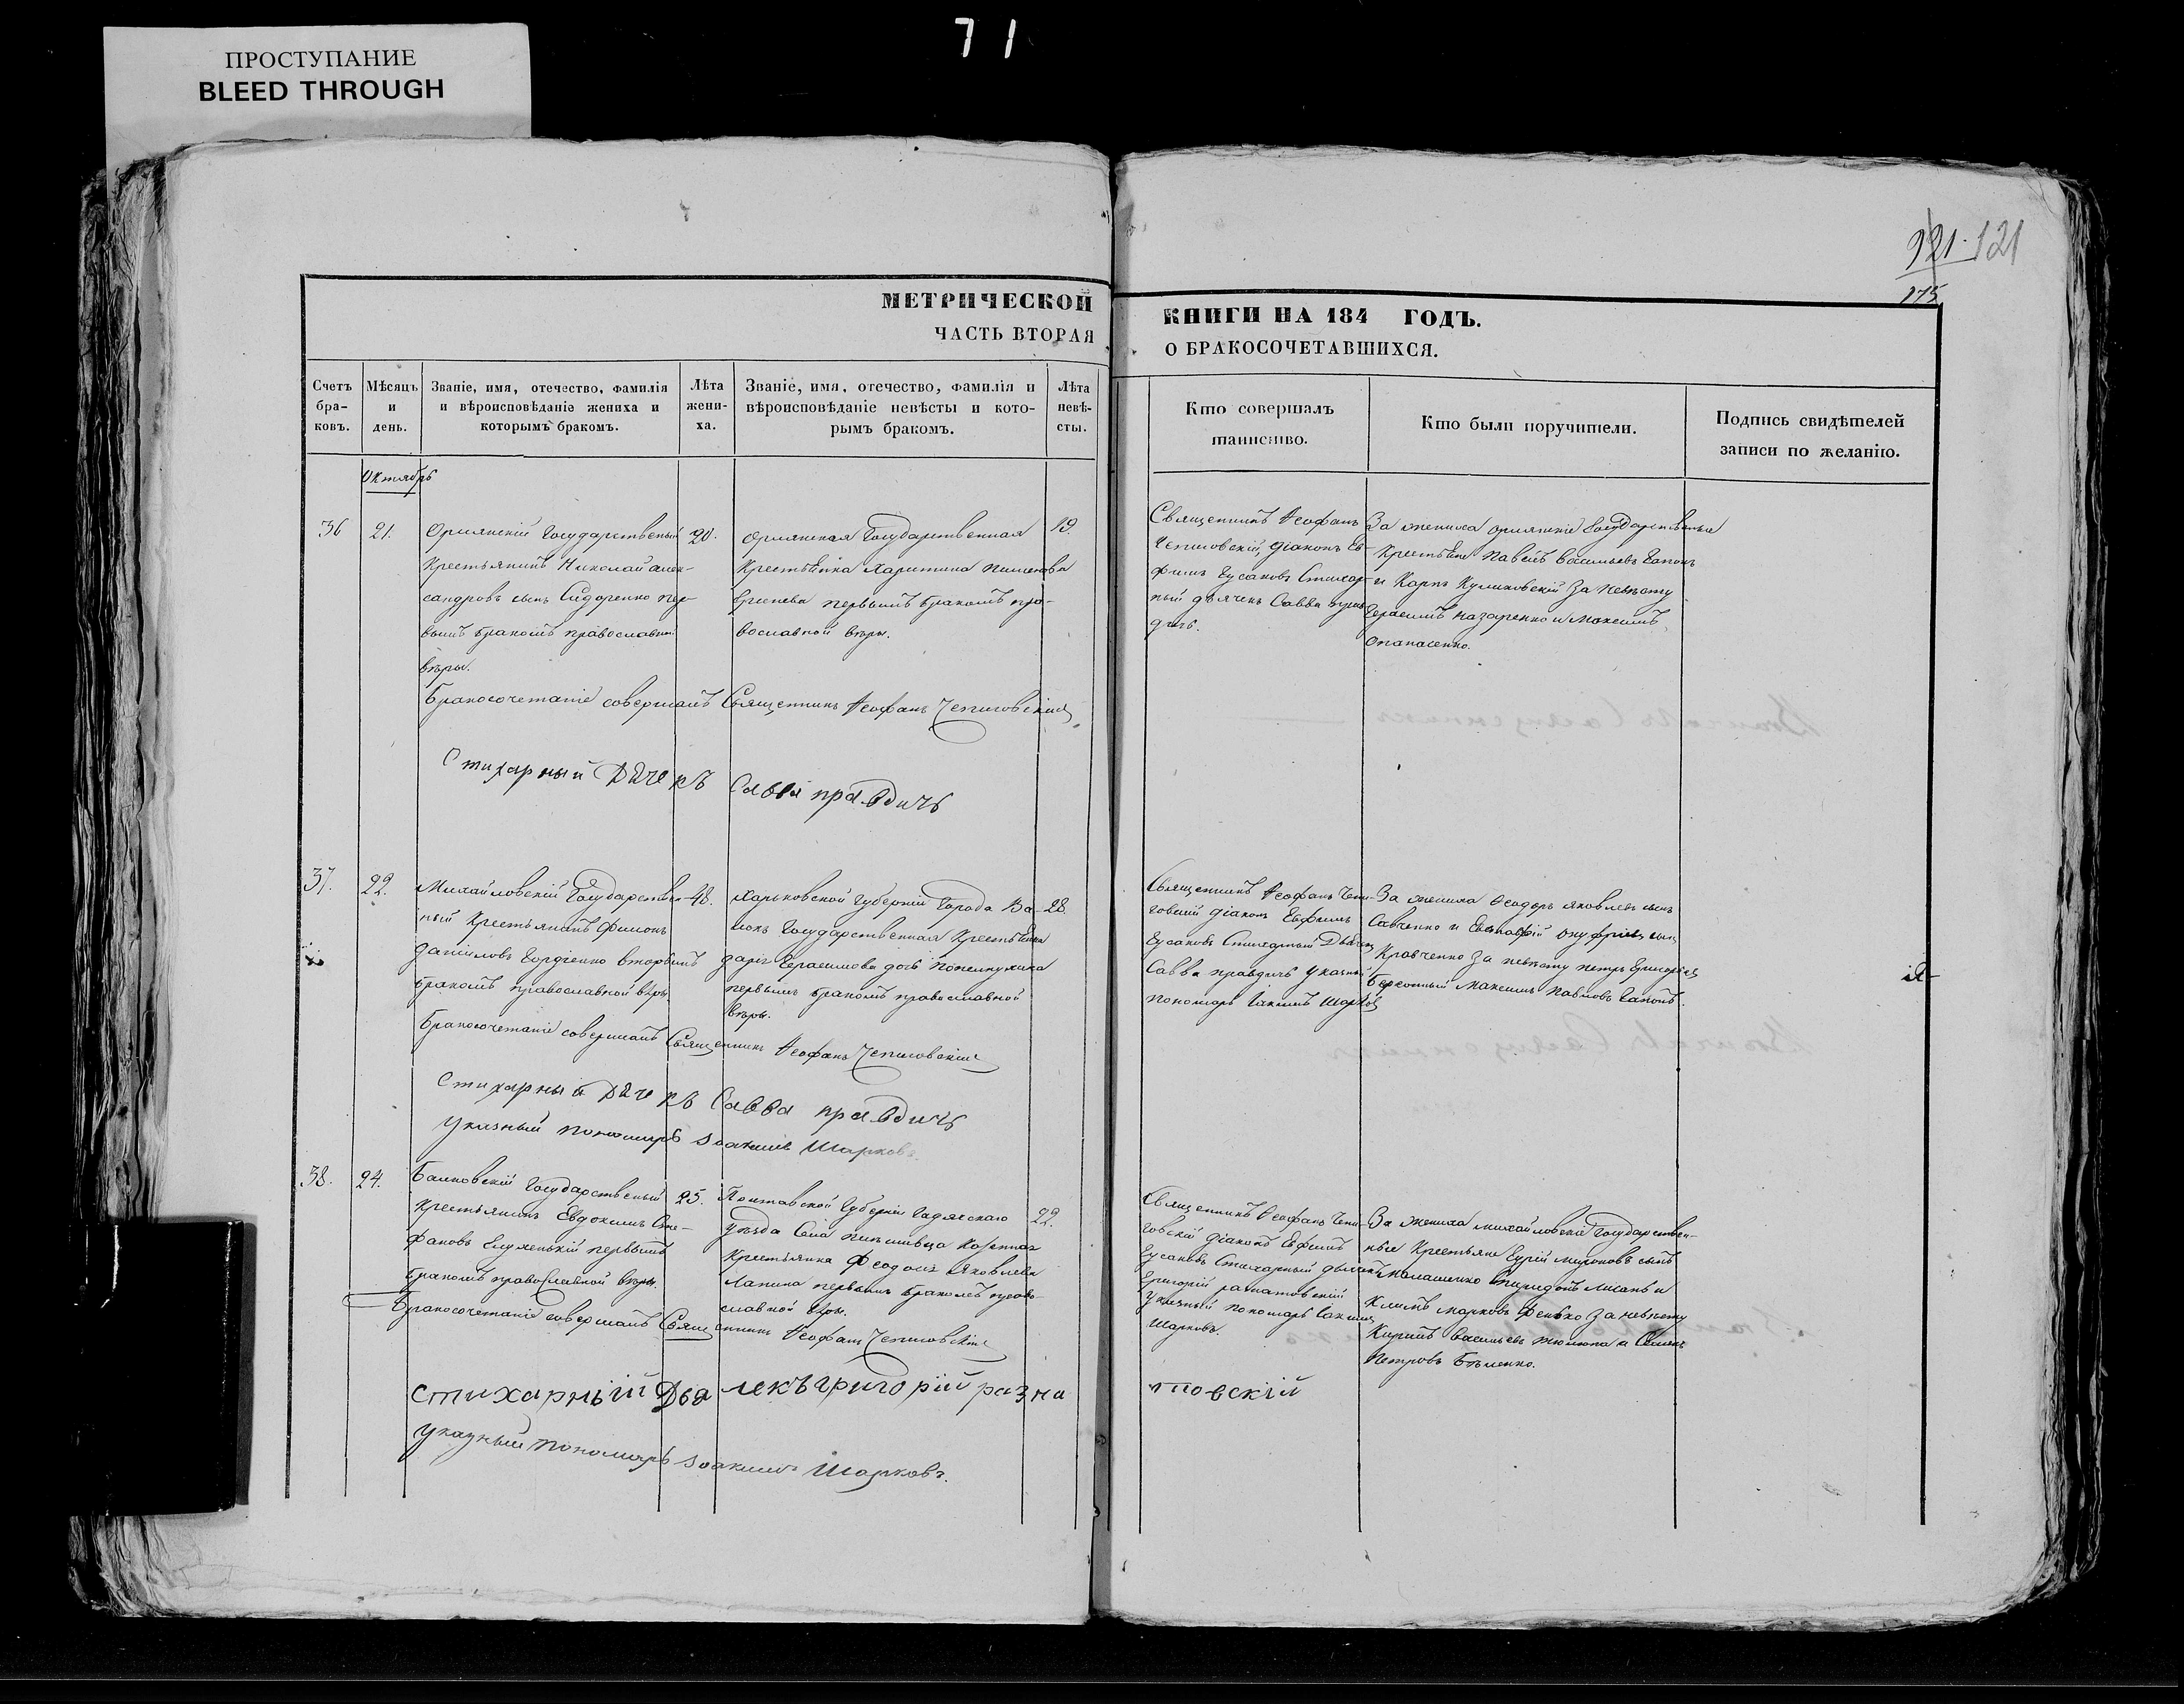 71
ПРОСТУПАНИЕ
BLEED THROUGH
121 121
175
МЕТРИЧЕСКОЙ
ЧАСТЬ ВТОРАЯ
КНИГИ НА 184 ГОДЪ.
О БРАКОСОЧЕТАВШИХСЯ.
Счетъ бра-ковъ.
Мѣсяцъ и день.
Званіе, имя, отечество, фамилія
и вѣроисповѣданіе жениха и
которымъ бракомъ.
Лѣта жени-ха.
Званіе, имя, отечество, фамилія и
вѣроисповѣданіе невѣсты и кото-
рымъ бракомъ.
Лѣта невѣ-сты.
Кто совершалъ
таинство.
Кто были поручители.
Подпись свидѣтелей
записи по желанію.
Октябрь
36
21.
Орлянскій Государственый
Крестьянинъ Николай Алек-
сандровъ сынъ Сидоренко пер-
вымъ бракомъ православной
вѣры.
20.
Орлянская Государственная
Крестьянка Харитина
первымъ бракомъ пра-
вославной вѣры.
19.
Священникъ Феофанъ
Чепиговскій, діаконъ Ев-
фимъ Гусаковъ Стихар-
ный дьячекъ Савва прав-
дичъ.
За жениха орлянскіе Государственные
Крестьяне Павелъ Васильевъ Гапонъ
и Карпъ Куликовскій За невѣсту
Герасимъ Назаренко и Максимъ
Опанасенко.
Бракосочетаніе совершалъ Священникъ Феофанъ Чепиговскій
Стихарный Дячекъ Савва правдичъ
37.
22.
Михайловскій Государствен-
ный Крестьянинъ Филонъ
Даніиловъ Гордіенко вторымъ
бракомъ православной вѣры
48.
Харьковской Губерніи Города Ва-
локъ Государственная Крестьянка
Дарія Герасимова дочь
первымъ бракомъ православной
вѣры.
28
Священникъ Феофанъ Чепи-
говскій діаконъ Евфимъ
Гусаковъ Стихарный Дьячекъ
Савва правдичъ указный
пономарь Іакимъ Шарковъ
За жениха Феодоръ Яковлевъ сынъ
Савченко и Евстафій Онуфріевъ сынъ
Кравченко За невѣсту Петръ Григорьевъ
Максимъ Павловъ Гапонъ.
Бракосочетаніе совершалъ Священникъ Феофанъ Чепиговскій
Стихарный Дячекъ Савва правдичъ
указный пономарь Іоакимъ Шарковъ
38.
24.
Балковскій Государственый
Крестьянинъ Евдокимъ Сте-
фановъ первымъ
бракомъ православной вѣры.
25.
Полтавской Губерніи Гадячскаго
уѣзда Села Козенная
Крестьянка Феодосія Яковлева
Лапина первымъ бракомъ право-
славной вѣры.
22.
Священникъ Феофанъ Чепи-
говскій діаконъ Евфимъ
Гусаковъ Стихарный дьячекъ
Григорій разнатовскій
указный пономарь Іакимъ
Шарковъ.
За жениха михайловскіе Государствен-
ные Крестьяне Гурій Мироновъ сынъ
Малашенко Спиридонъ Лисанъ и
Климъ Марковъ Фенько За невѣсту
Кирилъ Васильевъ Тюлюпа и Семенъ
Петровъ Бѣленко.
Бракосочетаніе совершалъ Священникъ Феофанъ Чепиговскій
стихарный Дьячекъ григорій разнатовскій
указный пономарь Іоакимъ Шарковъ.